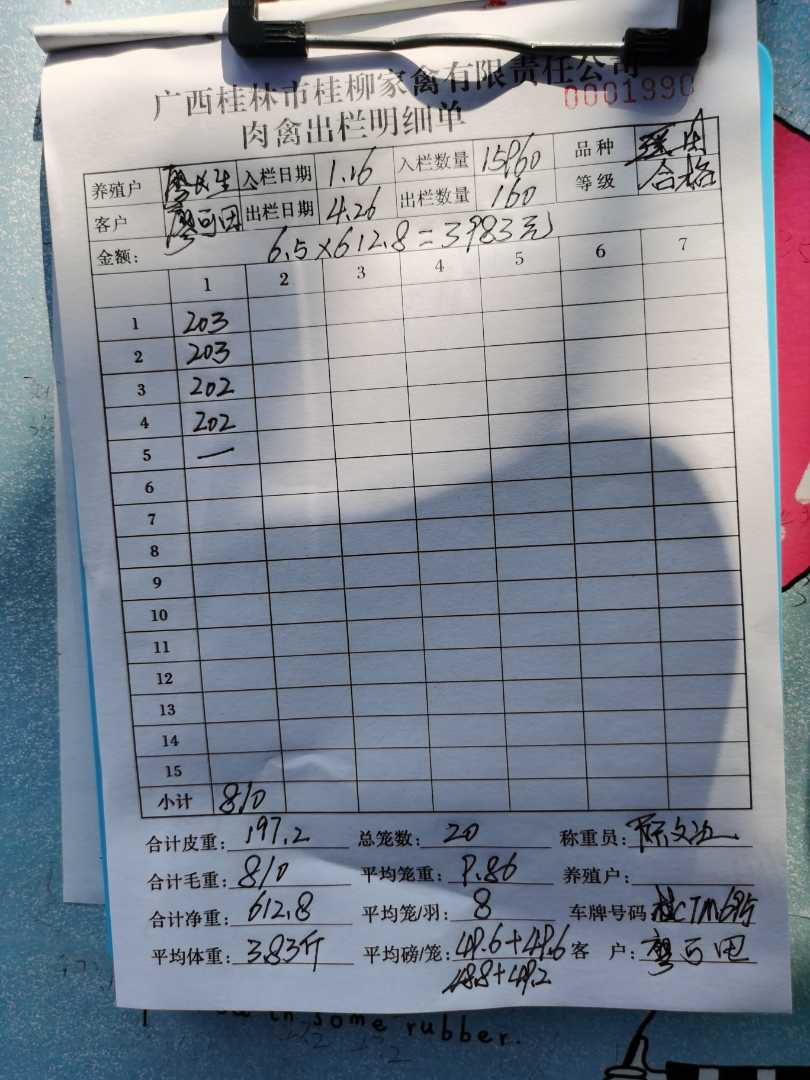 广西桂林市桂柳家禽有限责任公司
0001990
肉禽出栏明细单
养殖户 入栏日期 1.16 入栏数量 15960 品种
客户 廖可田 出栏日期 4.26 出栏数量 160 等级 合格
金额: 6.5×612.8=3983元
1 2 3 4 5 6 7
1 203
2 203
3 202
4 202
5 一
6
7
8
9
10
11
12
13
14
15
小计 810
合计皮重: 197.2 总笼数: 20 称重员:
合计毛重: 810 平均笼重: 9.86 养殖户:
合计净重: 612.8 平均笼/羽: 8 车牌号码
平均体重: 3.83斤 平均磅/笼: 49.6+49.6 客 户: 廖可田
48.8+49.2
in some rubber.